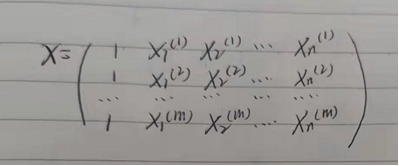 X = ( 1 X₁⁽¹⁾ X₂⁽¹⁾ ... Xₙ⁽¹⁾
1 X₁⁽²⁾ X₂⁽²⁾ .... Xₙ⁽²⁾
... ... ... ....
1 X₁⁽ᵐ⁾ X₂⁽ᵐ⁾ .... Xₙ⁽ᵐ⁾ )